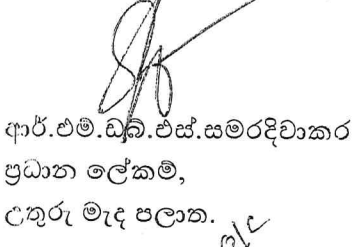 ආර්.එම්.ඩබ්.එස්.සමරදිවාකර
ප්‍රධාන ලේකම්,
උතුරු මැද පලාත.